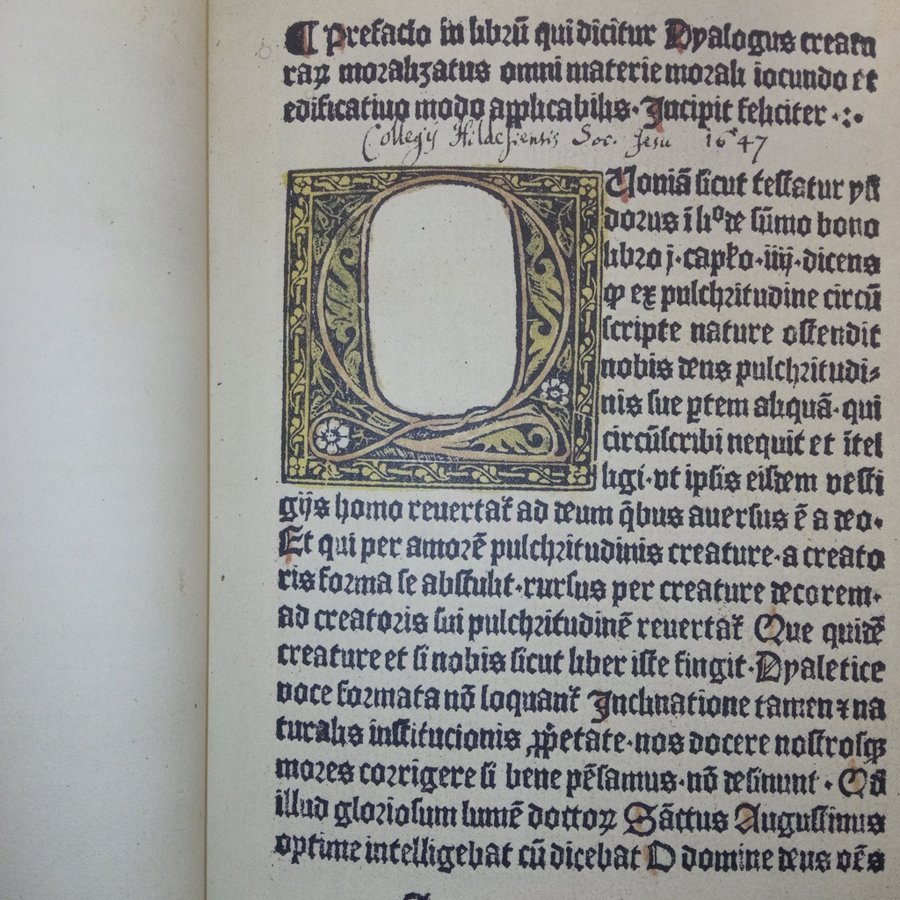 ¶ Prefacio in librū qui dicitur Dyalogus creatu
raꝝ moralizatus omni materie morali iocundo et
edificatiuo modo applicabilis· Incipit feliciter ·:·
Collegij Hildesiensis Soc. Jesu 1647
QUoniā sicut testatur ysi
dorus ī li° de sūmo bono
libro j· capło ·iiij· dicens
ꝙ ex pulchritudine circū
scripte nature ostendit
nobis deus pulchritudi⸗
nis sue ꝑtem aliquā· qui
circūscribi nequit et ītel
ligi· vt ipsis eisdem vesti
gijs homo reuertat᷑ ad deum q̄bus auersus ē a deo·
Et qui per amorē pulchritudinis creature· a creato
ris forma se abstulit· rursus per creature decorem·
ad creatoris sui pulchritudinē reuertat᷑ Que quidē
creature et si nobis sicut liber iste fingit· Dyaletice
voce formata nō loquant᷑ Inclinatione tamen ⁊ na
turalis institucionis ꝓp̄etate· nos docere nostrosqꝫ
mores corrigere si bene pēsamus· nō desinunt · Qd̄
illud gloriosum lumē doctoꝝ Sāctus Augustinus
optime intelligebat cū dicebat O domine deus oēs